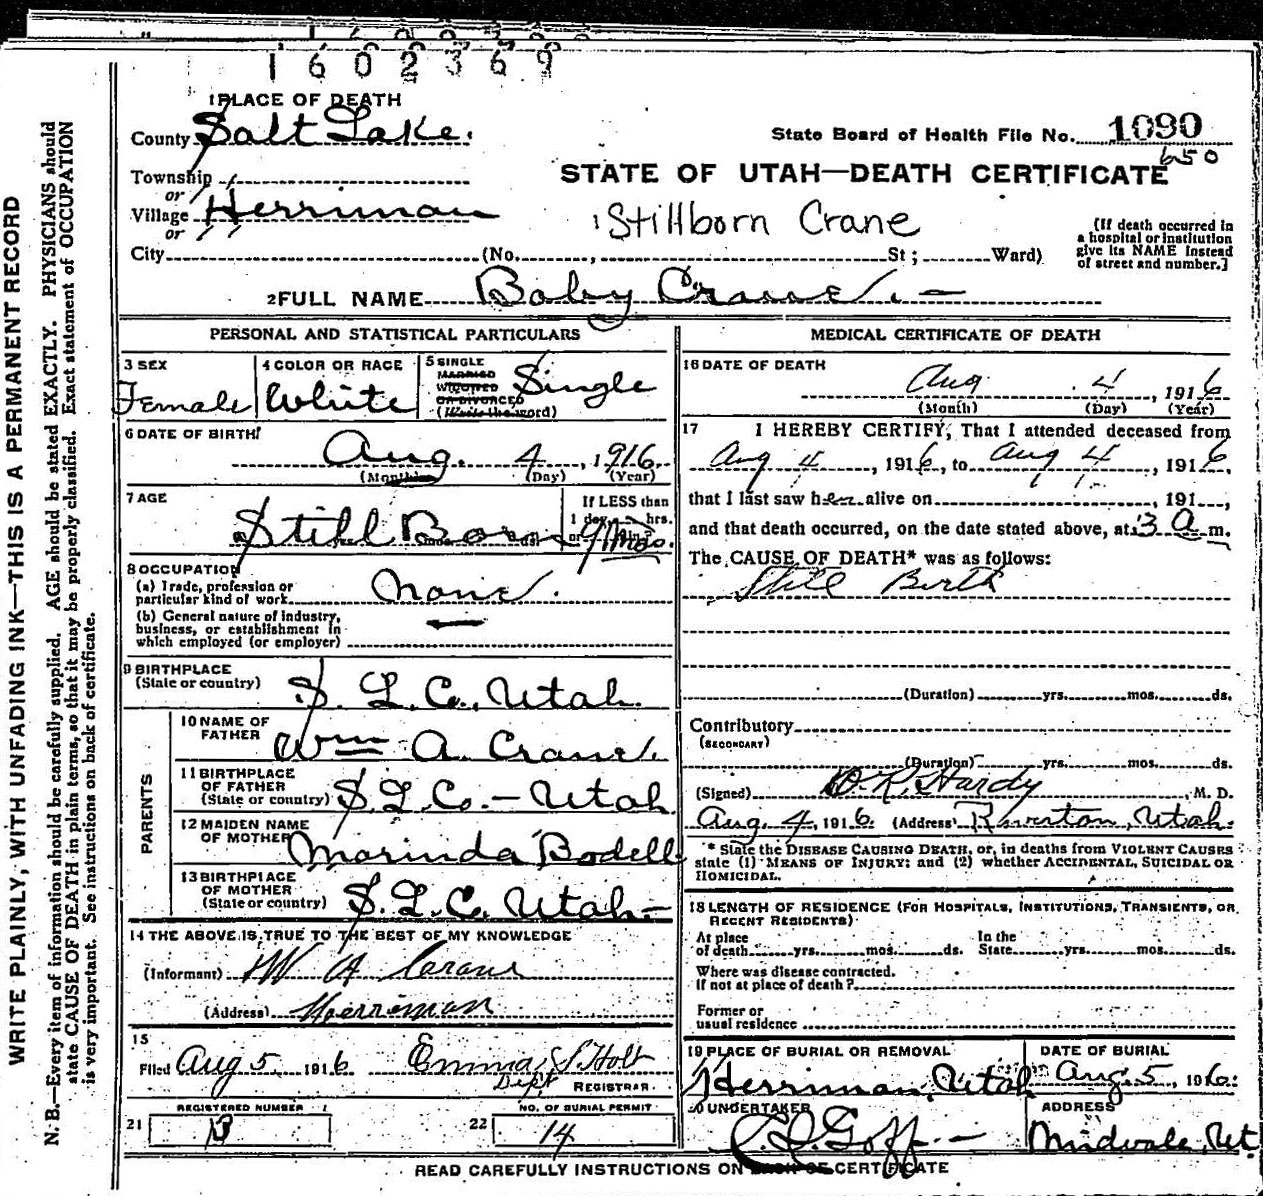 1602369
1 PLACE OF DEATH
County Salt Lake.
State Board of Health File No. 1090
650
Township
or
Village Herriman
or
STATE OF UTAH—DEATH CERTIFICATE
Stillborn Crane
City (No. , St ; Ward)
(If death occurred in
a hospital or institution
give its NAME instead
of street and number.]
2 FULL NAME Baby Crane. —
PERSONAL AND STATISTICAL PARTICULARS
3 SEX
Female
4 COLOR OR RACE
White
5 SINGLE
MARRIED
WIDOWED
OR DIVORCED
(Write the word)
Single
6 DATE OF BIRTH
Aug. 4, 1916.
(Month) (Day) (Year)
7 AGE
Still Born
If LESS than
1 day, hrs.
or min.?
9 mos.
8 OCCUPATION
(a) Trade, profession or
particular kind of work None.
(b) General nature of industry,
business, or establishment in
which employed (or employer) —
9 BIRTHPLACE
(State or country) S. L. Co., Utah.
PARENTS
10 NAME OF
FATHER Wm A. Crane.
11 BIRTHPLACE
OF FATHER
(State or country) S. L. Co. — Utah
12 MAIDEN NAME
OF MOTHER Marinda Bodell
13 BIRTHPLACE
OF MOTHER
(State or country) S. L. C. Utah —
14 THE ABOVE IS TRUE TO THE BEST OF MY KNOWLEDGE
(Informant) W A Crane
(Address) Herriman
15
Filed Aug 5, 1916 Emma S Holt
Dept REGISTRAR
REGISTERED NUMBER
21 13
NO. OF BURIAL PERMIT
22 14
MEDICAL CERTIFICATE OF DEATH
16 DATE OF DEATH
Aug. 4, 1916
(Month) (Day) (Year)
17 I HEREBY CERTIFY, That I attended deceased from
Aug 4, 1916, to Aug 4, 1916
that I last saw her alive on , 191 ,
and that death occurred, on the date stated above, at 3 a. m.
The CAUSE OF DEATH* was as follows:
Still Birth
(Duration) yrs. mos. ds.
Contributory
(SECONDARY)
(Duration) yrs. mos. ds.
(Signed) Hardy, M. D.
Aug. 4, 1916. (Address) Riverton, Utah.
* State the DISEASE CAUSING DEATH, or, in deaths from VIOLENT CAUSES
state (1) MEANS OF INJURY; and (2) whether ACCIDENTAL, SUICIDAL OR
HOMICIDAL.
18 LENGTH OF RESIDENCE (FOR HOSPITALS, INSTITUTIONS, TRANSIENTS, OR
RECENT RESIDENTS)
At place
of death yrs. mos. ds.
In the
State yrs. mos. ds.
Where was disease contracted.
If not at place of death?
Former or
usual residence
19 PLACE OF BURIAL OR REMOVAL
Herriman, Utah
DATE OF BURIAL
Aug. 5, 1916.
20 UNDERTAKER
Goff. —
ADDRESS
Midvale, Ut.
READ CAREFULLY INSTRUCTIONS ON BACK OF CERTIFICATE
WRITE PLAINLY, WITH UNFADING INK—THIS IS A PERMANENT RECORD
N. B.—Every item of information should be carefully supplied. AGE should be stated EXACTLY. PHYSICIANS should
state CAUSE OF DEATH in plain terms, so that it may be properly classified. Exact statement of OCCUPATION
is very important. See instructions on back of certificate.